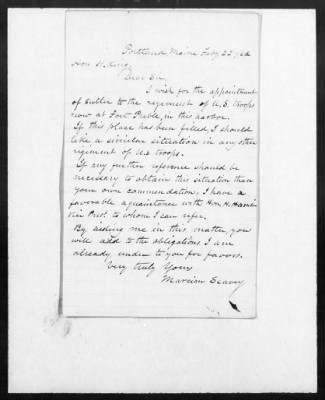 Portland, Maine Feby 22 /62
Hon. H. King
Dear Sir,
I wish for the appointment
of Sutler to the regiment of U.S. troops
now at Fort Preble, in this harbor.
If this place has been filled, I should
like a similar situation in any other
regiment of U.S. troops.
If any further reference should be
necessary to obtain this situation than
your own commendation, I have a
favorable aquaintance with Hon. H. Hamlin
Vice Prest. to whom I can refer.
By aiding me in this matter you
will add to the obligations I am
already under to you for favors.
Very truly Yours
Seavey